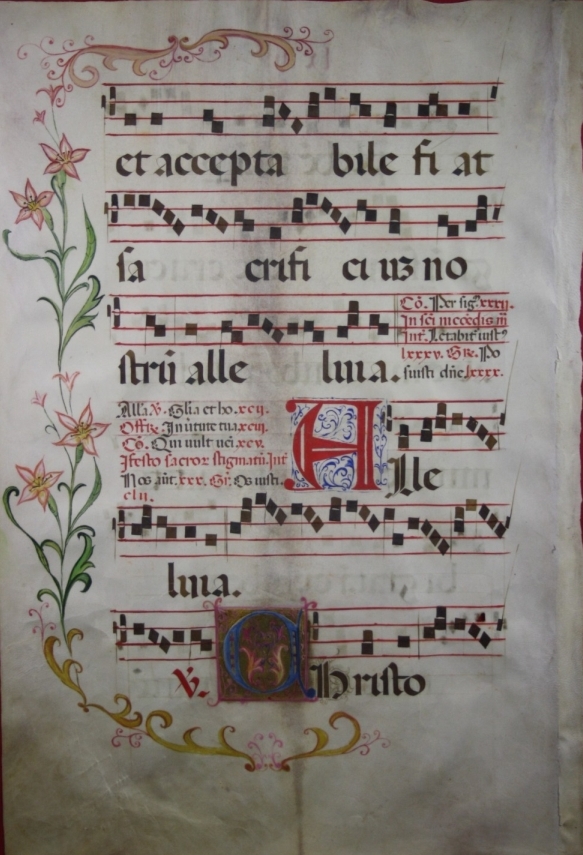 et accepta bile fi at
sa crifi ci uz no
strū alle luia.
Cō. Per sig. xxxij.
In sci nicōedis m
Int. Letabit iust9
lxxxv. Gr. Po
suisti dn̄e lxxx.
Alla v. Glia et ho. xcij.
Offre In ūtute tua xcij.
Cō. Qui uult uēi xcv.
I festo sacror stigmatū. Int
Nos aūt. xxx. Gr. Os iusti.
clii.
Alle
luia.
v. Christo